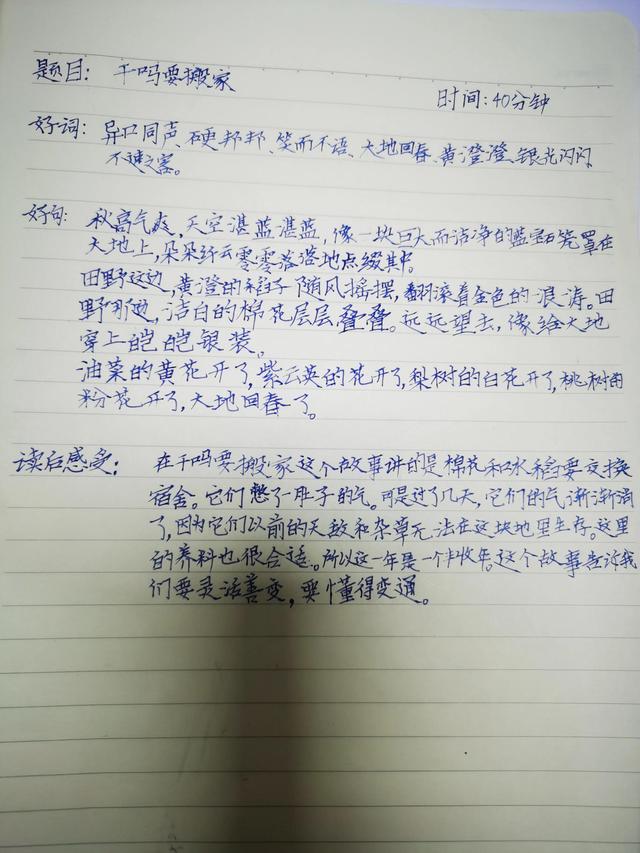 题目：干吗要搬家
时间：40分钟
好词：异口同声、硬邦邦、笑而不语、大地回春、黄澄澄、银光闪闪、
不速之客。
好句：秋高气爽，天空湛蓝湛蓝，像一块巨大而洁净的蓝宝石笼罩在
大地上，朵朵纤云零零落落地点缀其中。
田野这边，黄澄的稻子随风摇摆，翻滚着金色的浪涛。田
野那边，洁白的棉花层层叠叠。远远望去，像给大地
穿上皑皑银装。
油菜的黄花开了，紫云英的花开了，梨树的白花开了，桃树的
粉花开了，大地回春了。
读后感受：在干吗要搬家这个故事讲的是棉花和水稻要交换
宿舍。它们憋了一肚子的气。可是过了几天，它们的气渐渐消
了，因为它们以前的天敌和杂草无法在这块地里生存。这里
的养料也很合适。所以这一年是一个丰收年。这个故事告诉我
们要灵活善变，要懂得变通。